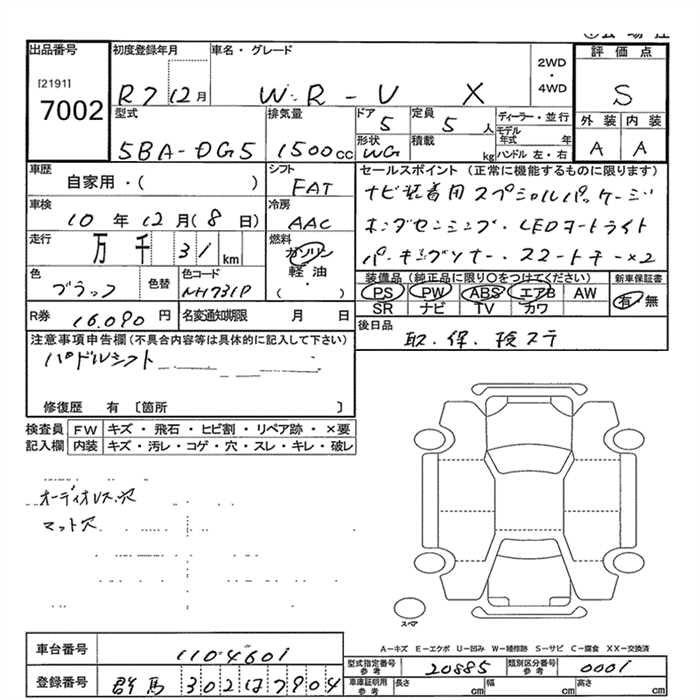 出品番号
[2191]
7002
初度登録年月
R7 12月
車名・グレード
W・R-V X
2WD
・
4WD
評価点
S
型式
5BA-DG5
排気量
1500cc
ドア
5
定員
5人
形状
WG
積載
kg
ディーラー・並行
モデル年式 年
ハンドル 左・右
外装 内装
A A
車歴
自家用・( )
シフト
FAT
セールスポイント (正常に機能するものに限ります)
ナビ装着用スペシャルパッケージ
ホンダセンシング・LEDオートライト
パーキングソナー・スマートキー×2
車検
10年12月(8日)
冷房
AAC
走行
万千 31km
燃料
ガソリン
軽油
・
( )
色
ブラック
色替
色コード
NH731P
装備品 (純正品に限り○をつけてください)
PS PW ABS エアB AW
SR ナビ TV カワ
新車保証書
有・無
R券 16,090円
名変通知期限 月 日
後日品
取.保.検ステ
注意事項申告欄(不具合内容等は具体的に記入して下さい)
パドルシフト
修復歴 有 〔箇所 〕
検査員 FW キズ・飛石・ヒビ割・リペア跡・×要
記入欄 内装 キズ・汚レ・コゲ・穴・スレ・キレ・破レ
オーディオレス穴
マット穴
スマ
A―キズ E―エクボ U―凹み W―補修跡 S―サビ C―腐食 XX―交換済
車台番号 1104601
登録番号 群馬302は7904
型式指定番号 参考 20885
類別区分番号 参考 0001
車庫証明用 参考 長さ cm 幅 cm 高さ cm